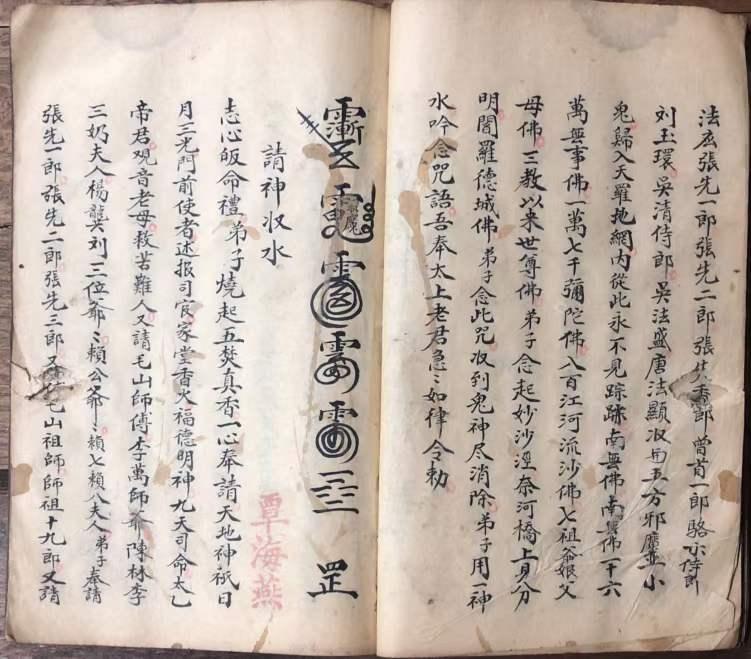 法玄張先一郎張先二郎張先秀郎曾首一郎駱亦侍郎
刘玉環吳清侍郎吳法盛唐法顯收虫五方邪魔並小
鬼歸入天羅地網內從此永不見踪跡南無佛南無佛一千六
萬無事佛一萬七千彌陀佛八百江河流沙佛七祖爺娘父
母佛三教以来世尊佛弟子念起妙沙淫奈河橋上身分
明閻羅德城佛弟子念此咒收到鬼神尽消除弟子用一神
水吟念咒語吾奉太上老君急〻如律令勅
罡
請神收水
志心皈命禮弟子燒起五焚真香一心奉請天地神祇日
月三光門前使者述报司官家堂香火福德明神九天司命太乙
帝君观音老母救苦難人又請毛山師傅李萬師爺陳林李
三奶夫人楊龔刘三位爺〻賴公爺〻賴七賴八夫人弟子奉請
張先一郎張先二郎張先三郎又請毛山祖師師祖十九郎又請
覃海燕